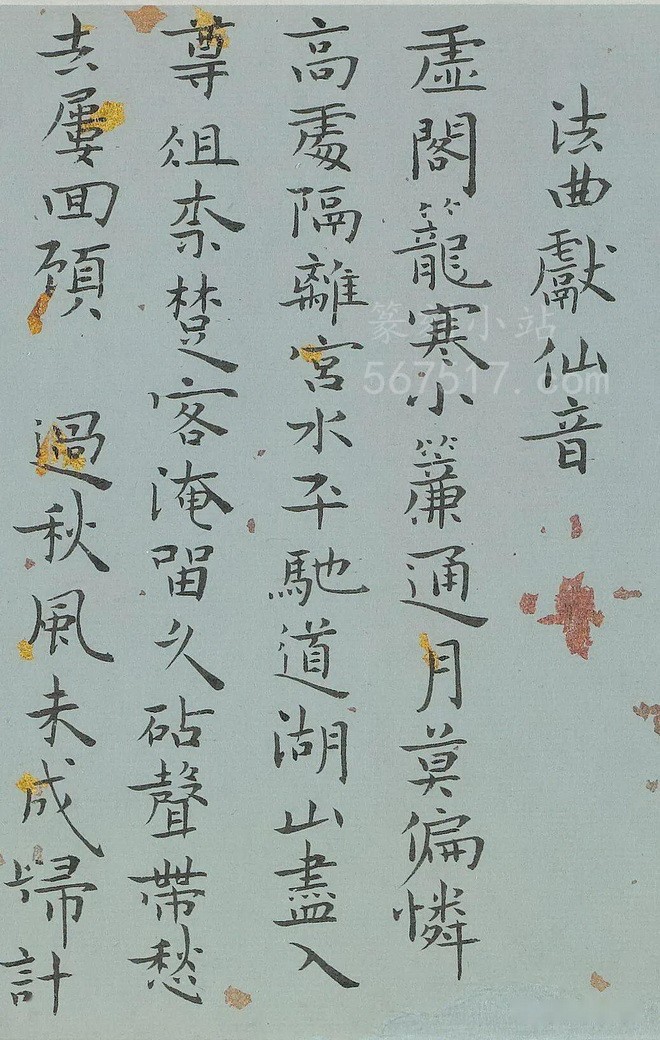 法曲獻仙音
虛閣籠寒小簾通月莫偏憐
高處隔離宮水平馳道湖山盡入
尊俎柰楚客淹留久砧聲帶愁
去屢回顧 過秋風未成歸計
篆刻小站
567517.com